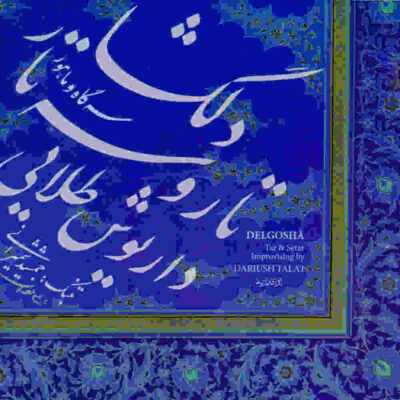 دلگشا
سه‌گاه و ماهور
تار و سه تار
داریوش طلایی
DELGOSHÂ
Tar & Setar
Improvising by
DARIUSH TALAI